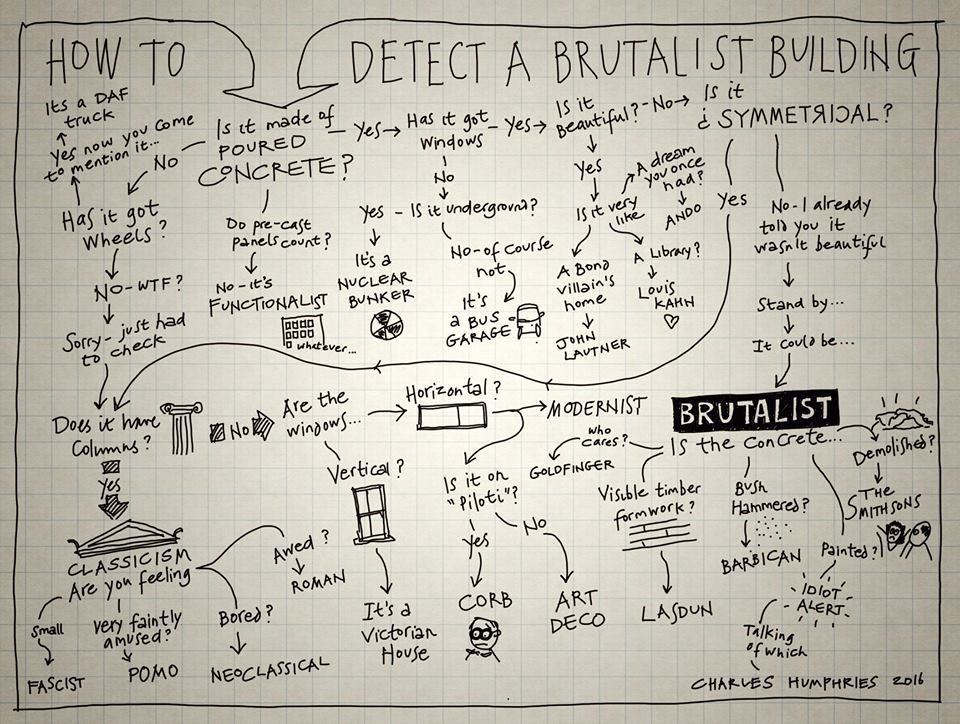 HOW TO
DETECT A BRUTALIST BUILDING
Its a DAF
truck
Yes now you come
to mention it...
No
Is it made of
POURED
CONCRETE?
Yes
Has it got
Windows
Yes
Is it
Beautiful?
No
Is it
¿ SYMMETRICAL?
No
Yes
A dream
you once
had?
ANDO
Yes
Has it got
Wheels?
Do pre-cast
panels count?
Yes
Is it underground?
Is it very
like
No - I already
told you it
wasn't beautiful
No-WTF?
No - it's
FUNCTIONALIST
whatever...
It's a
NUCLEAR
BUNKER
No - of course
not
It's
a BUS
GARAGE
A Bond
villain's
home
JOHN
LAUTNER
A Library?
Louis
KAHN
Stand by...
It could be...
Sorry - just had
to check
Does it have
Columns?
No
Are the
windows...
Horizontal?
MODERNIST
BRUTALIST
Is the concrete...
who
cares?
GOLDFINGER
Demolished?
THE
SMITHSONS
Yes
Vertical?
Is it on
"Piloti"?
No
Yes
Visible timber
formwork?
Bush
Hammered?
BARBICAN
Painted?
IDIOT
ALERT
CLASSICISM
Are you feeling
Awed?
ROMAN
Small
Very faintly
amused?
Bored?
FASCIST
POMO
NEOCLASSICAL
It's a
Victorian
House
CORB
ART
DECO
LASDUN
Talking
of which
CHARLES HUMPHRIES 2016